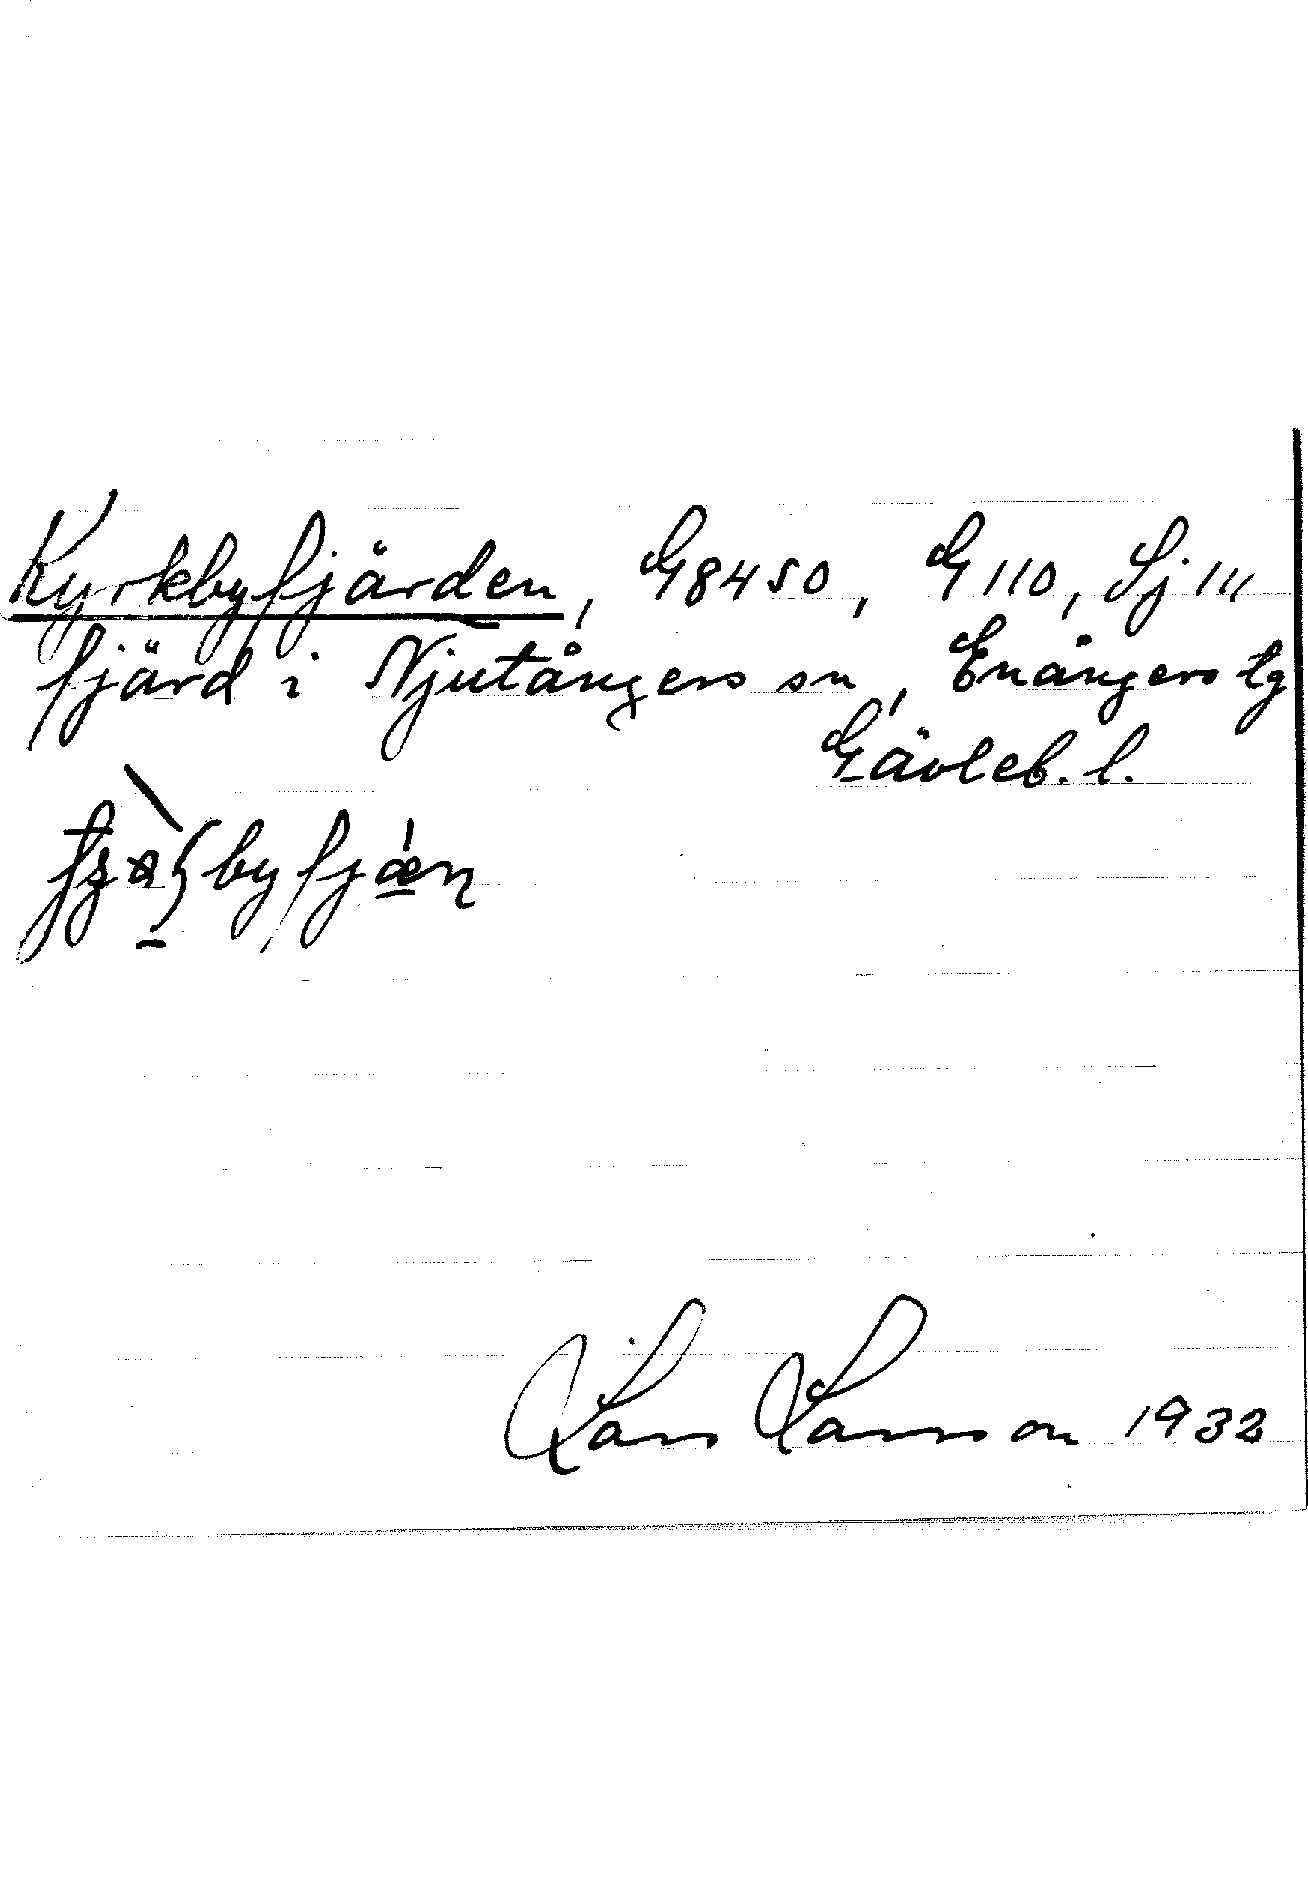 Kyrkbyfjärden, G8450, G110, Sj111
fjärd i Njutångers sn, Enångers tg
Gävleb. l.
Lars Larsson 1932